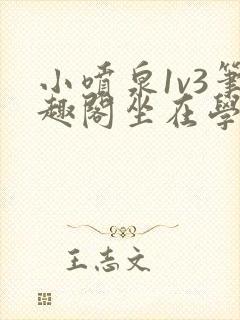 小噴泉1v3筆
趣閣坐在學
王志文